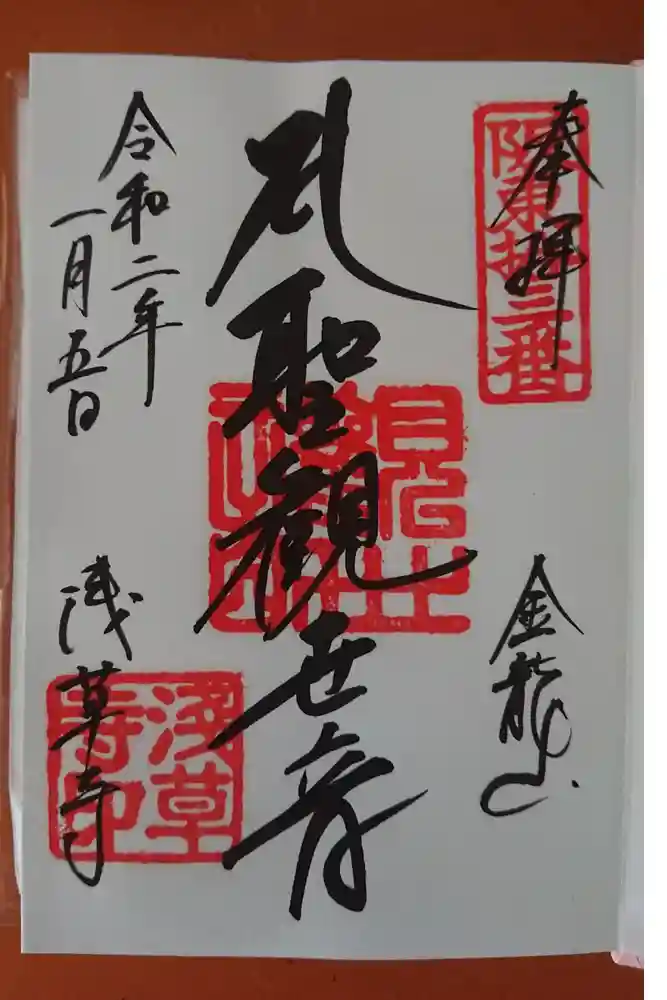 奉拝
阪東拾三番
金龍山
聖観世音
令和二年
一月五日
浅草寺
浅草
寺印